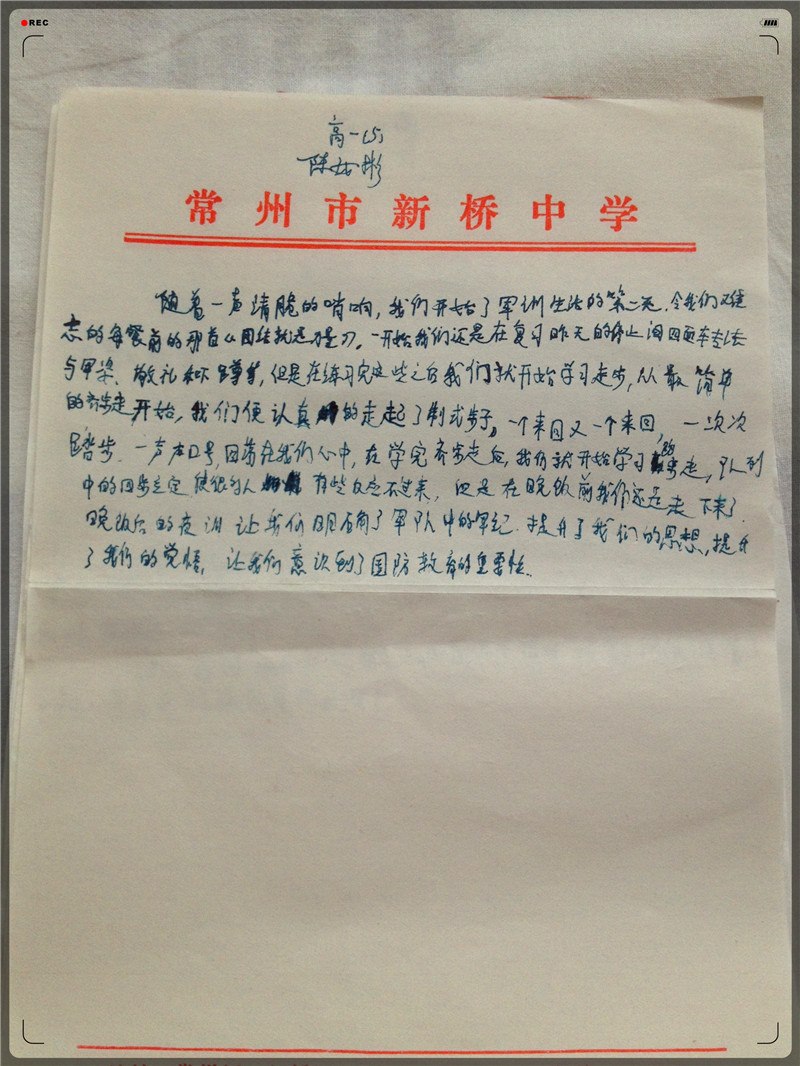 REC
高一(5)
陈 彬
常州市新桥中学
随着一声清脆的哨响,我们开始了军训生活的第二天,令我们难
忘的每餐前的那首《团结就是力量》。一开始我们还是在复习昨天的停止间四面转法
与 敬礼和下蹲等,但是在练习完这些之后我们就开始学习走步,从最简单
的齐步走开始,我们便认真的走起了制式步子。一个来回又一个来回,一次次
踏步,一声声口号,回荡在我们心中,在学完齐步走后,我们就开始学习跑步走,队列
中的四步立定使很多人有些反应不过来,但是在晚饭前我们还是走下来了
晚饭后的夜训让我们明确了军队中的军纪,提升了我们的思想,提升
了我们的觉悟,让我们意识到了国防教育的重要性。